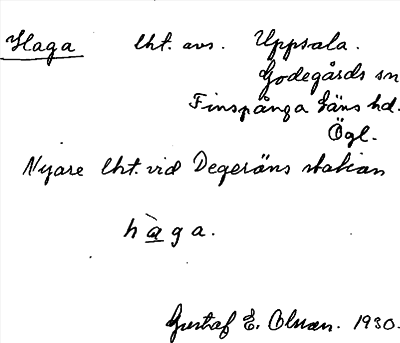 Haga lht. avs. Uppsala.
Godegårds sn
Finspånga läns hd.
Ögl.
Nyare lht. vid Degeröns station
hàga.
Gustaf E. Olsson. 1930.